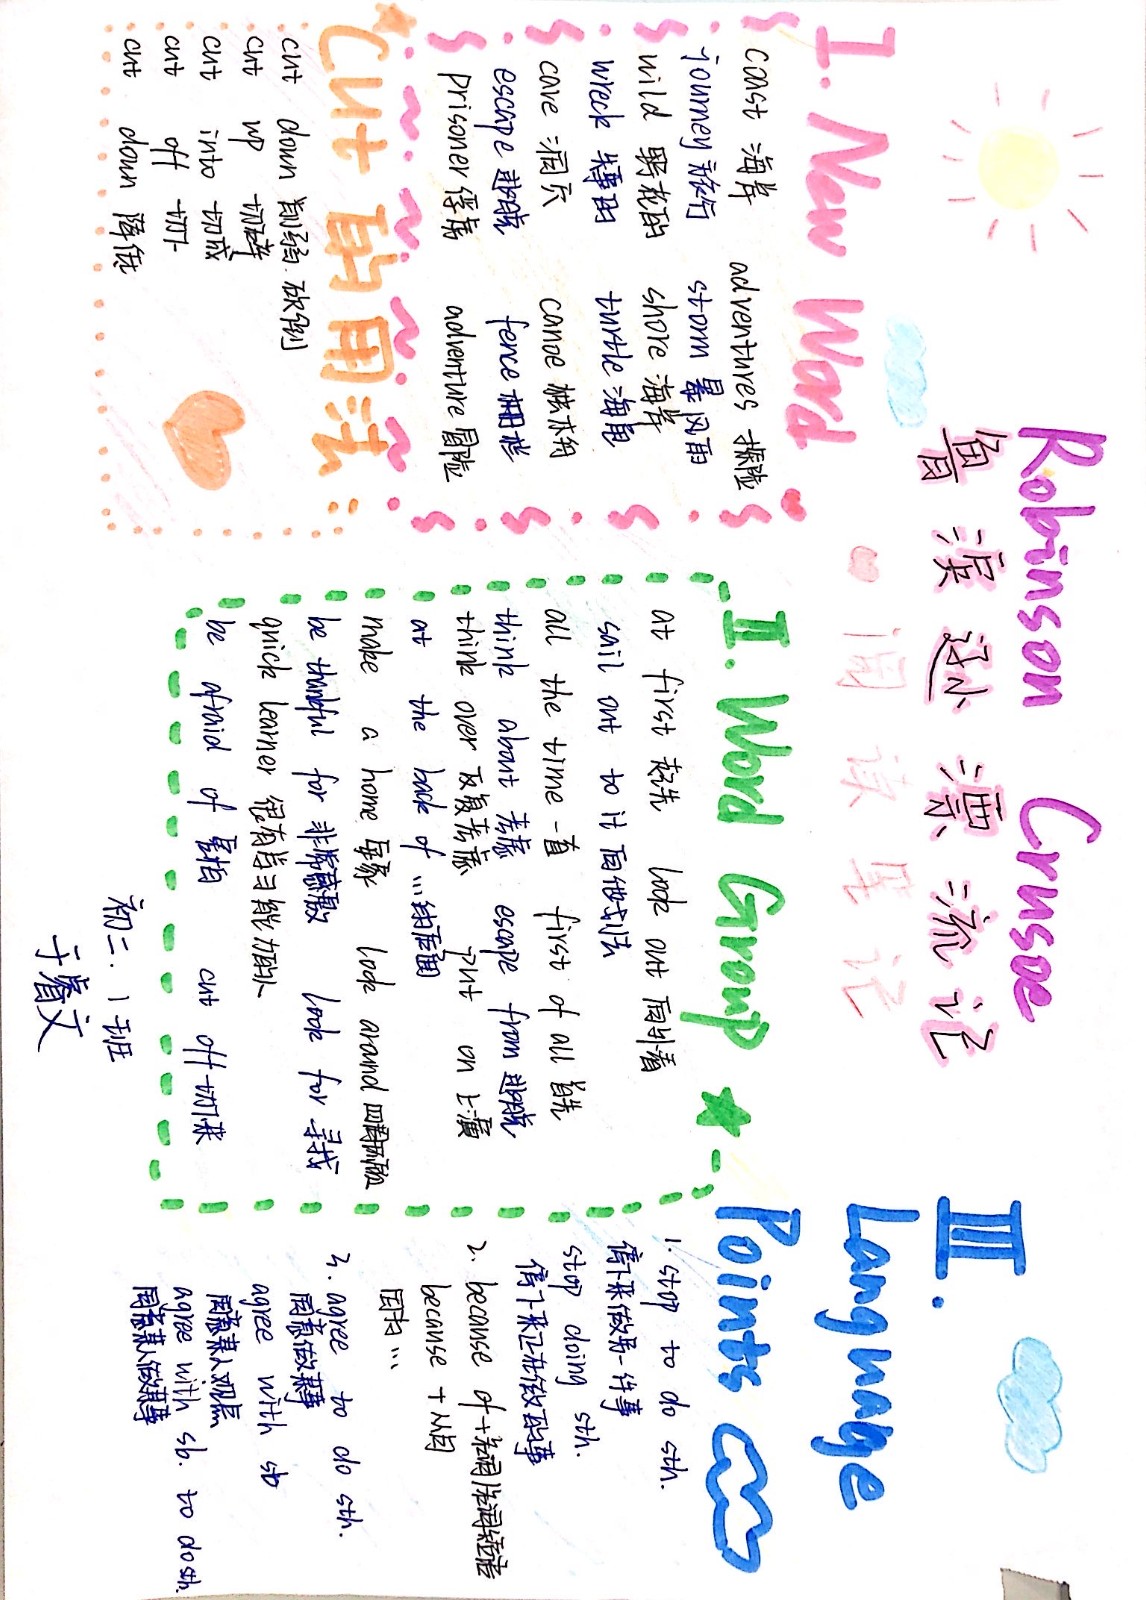 Robinson Crusoe
鲁滨逊漂流记
阅读笔记
I. New Word
coast 海岸 adventures 探险
journey 旅行 storm 暴风雨
wild 野蛮的 shore 海岸
wreck 失事的 turtle 海龟
cave 洞穴 canoe 独木舟
escape 逃脱 fence 栅栏
prisoner 俘虏 adventure 冒险
Cut 的用法
cut down 削弱 砍倒
cut up 切碎
cut into 切成
cut off 切下
cut down 降低
II. Word Group
at first 起先 look out 向外看
sail out to it 向他驶去
all the time 一直 first of all 首先
think about 考虑 escape from 逃脱
think over 反复考虑 put on 上演
at the back of …的后面
make a home 安家 look around 四周
be thankful for 非常感激 look for 寻找
quick learner 很有学习能力的人
be afraid of 害怕 cut off 切
III. Language Points
1. stop to do sth.
停下来做另一件事
stop doing sth.
停下来正在做的事
2. because of + 名词/名词短语
because + 从句
因为…
3. agree to do sth.
同意做某事
agree with sb
同意某人观点
agree with sb. to do sth.
同意某人做某事
初二.1班
于睿文